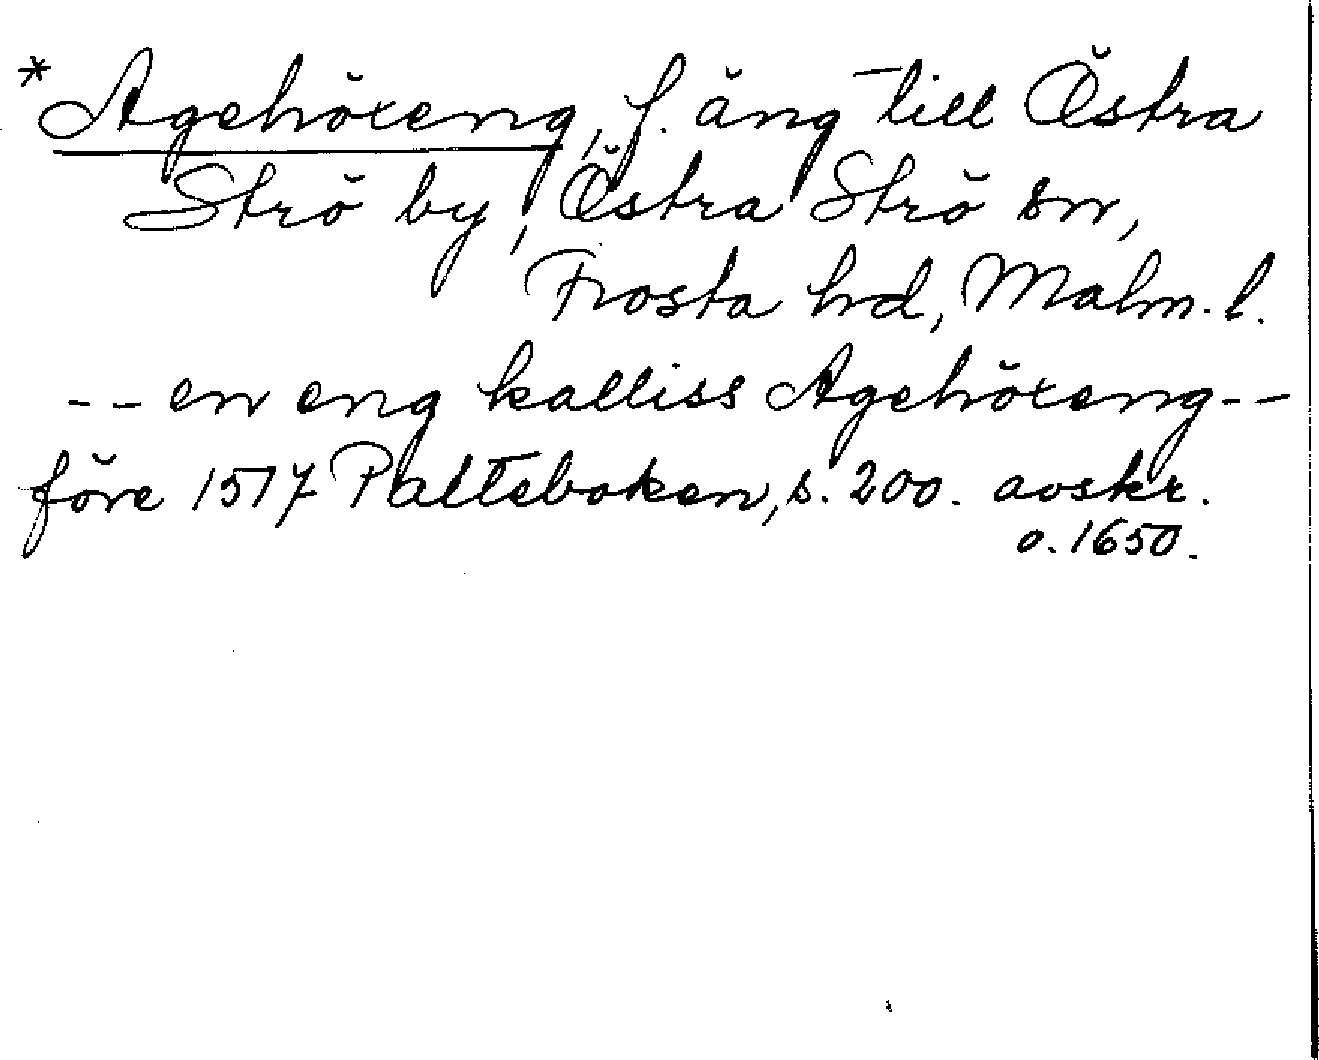 *Agehöxeng, f. äng till Östra
Strö by, Östra Strö sn,
Frosta hd, Malm. l.
-- en eng kalliss Agehöxeng --
före 1517 Palteboken, s. 200. avskr.
o. 1650.